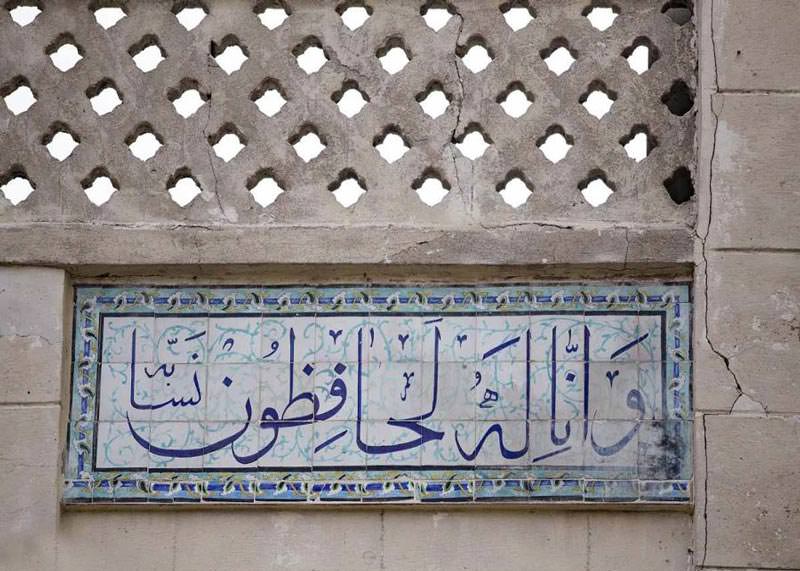 وَانَّا لَهُ لَحَافِظُونَ نسابه